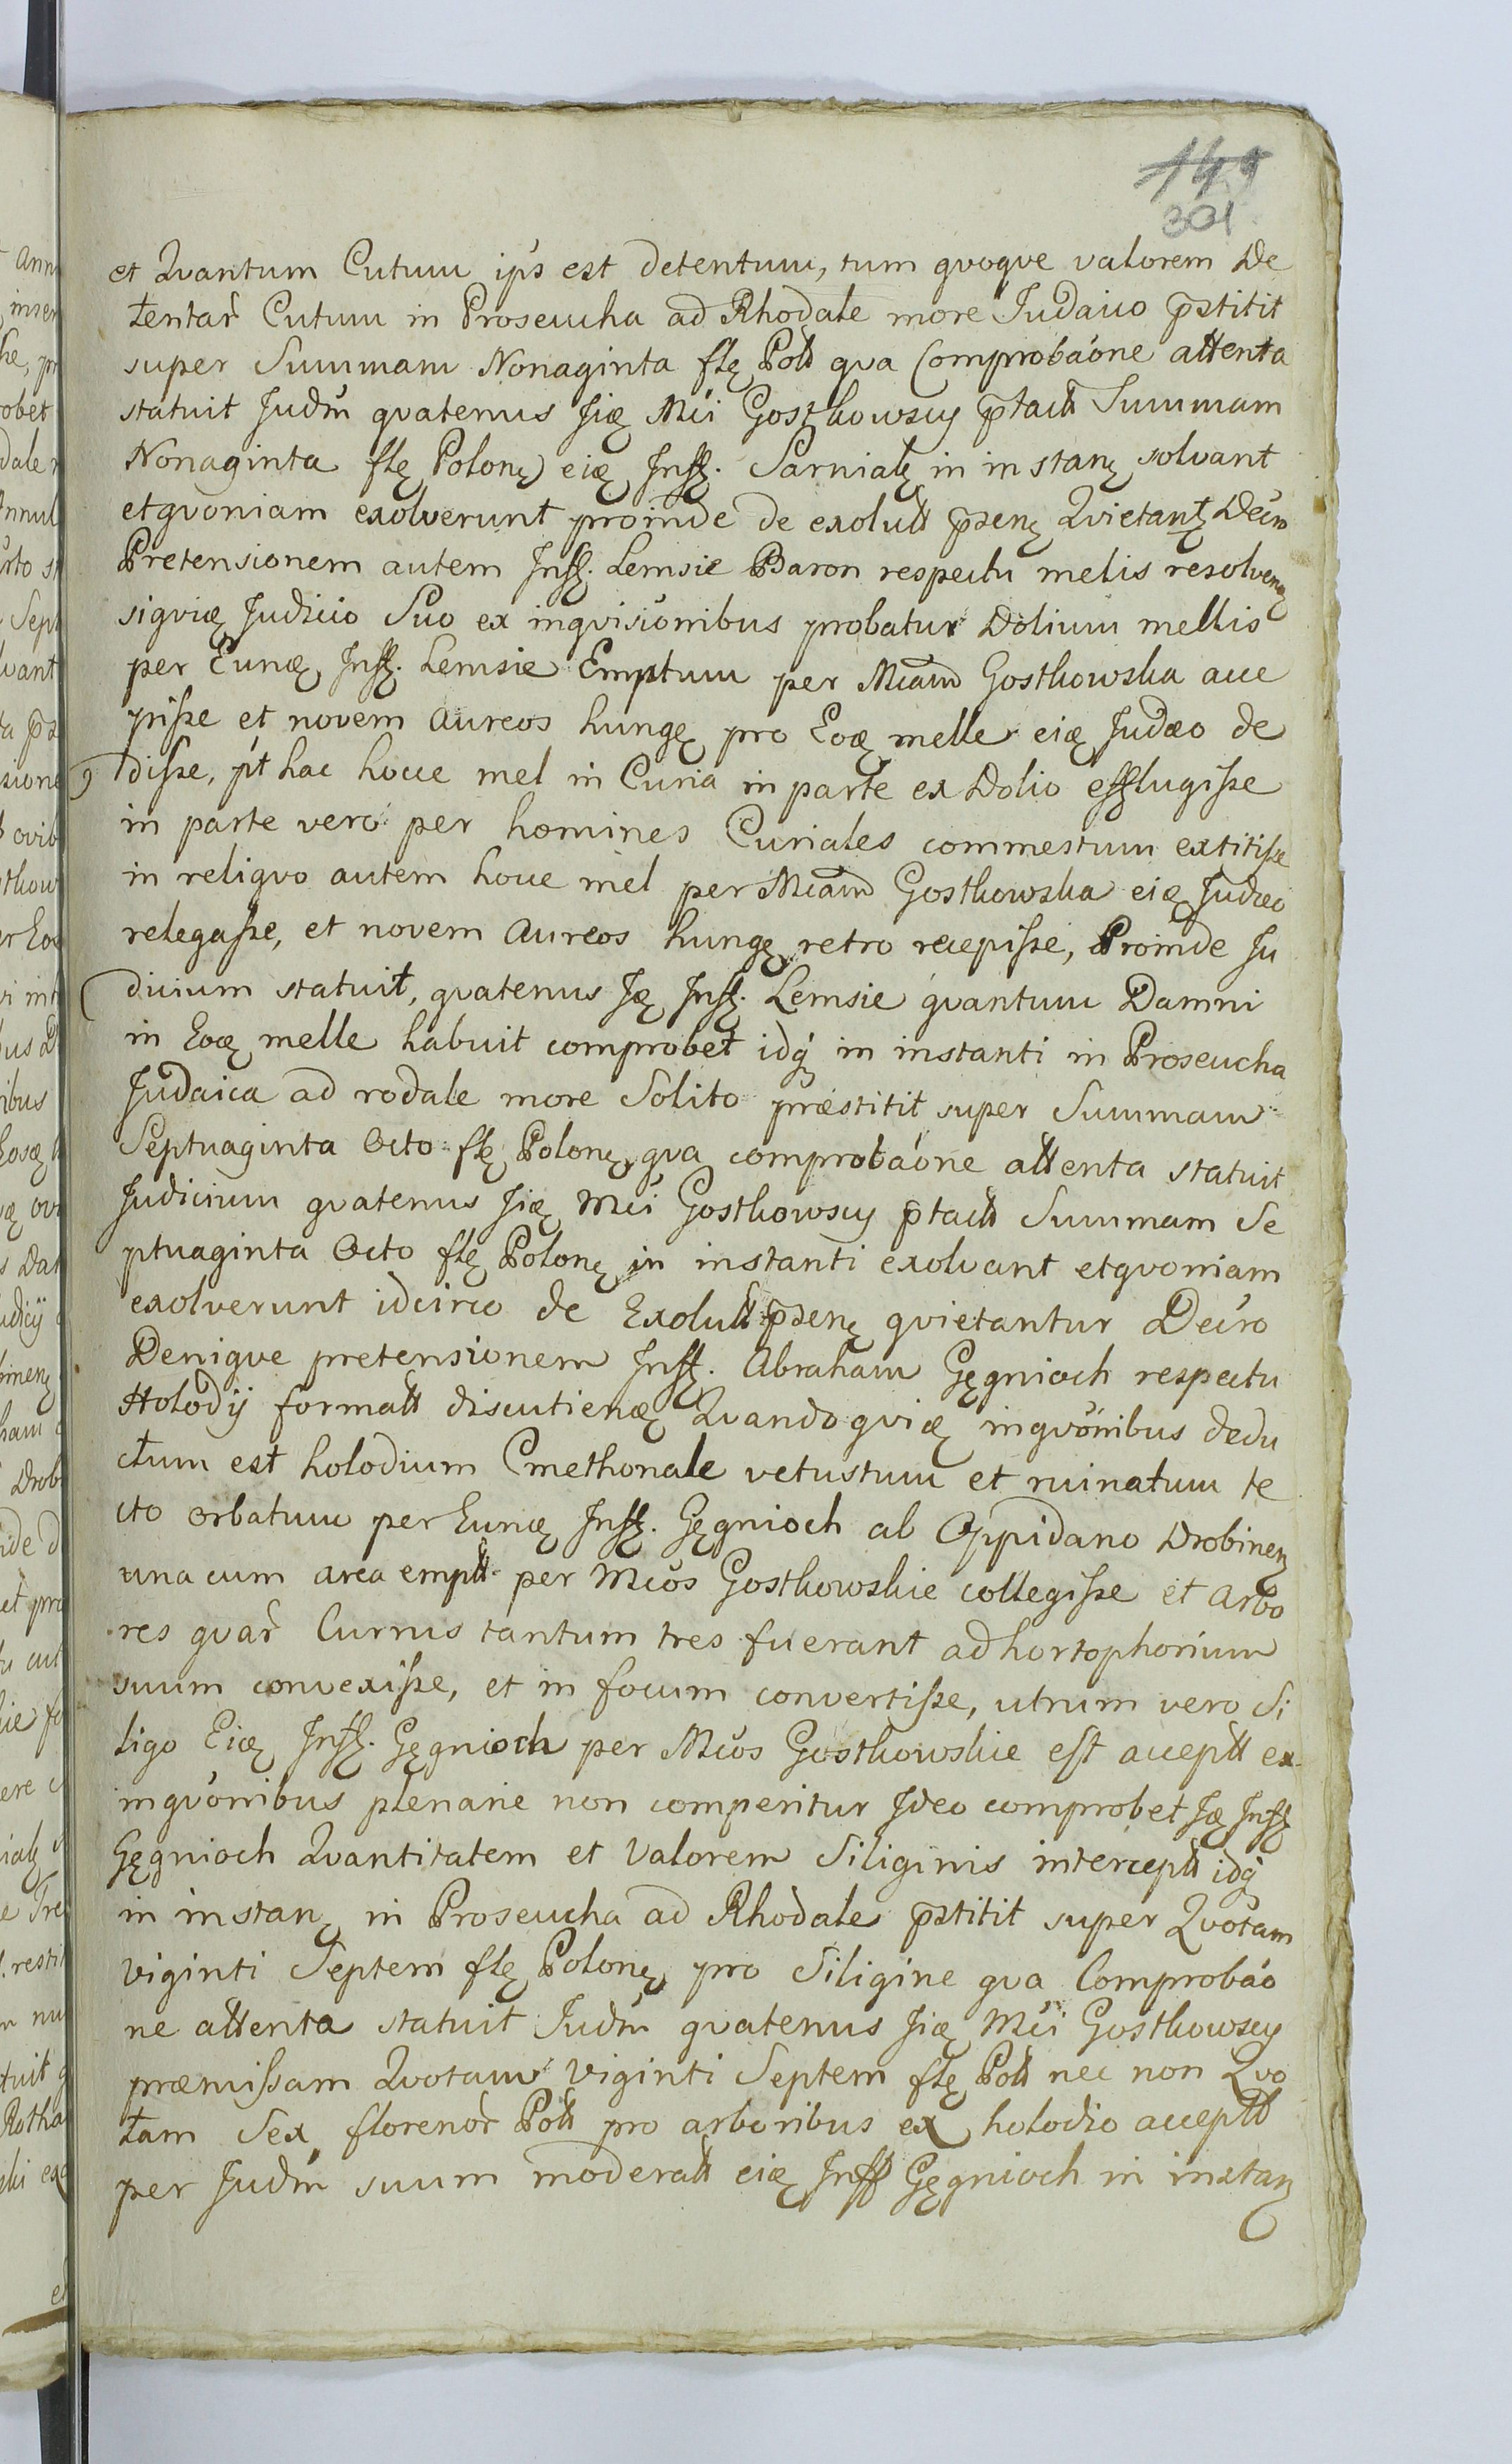 149
301
et Qvantum Cutuu ips est detentuu, tum qvoqve valorem De
tentar Cutuu in Proseucha ad Rhodale more Judaico pstitit
super Summam Nonaginta flę Poll qva Comprobaone attenta
statuit Judm qvatenus Jię Mci Gostkowscy ptactt Summam
Nonaginta flę Polonę eię Inflę. Sarnialę in instanę solvant
etqvoniam exolverunt proinde de exolutt psenę Qvietantę Decro
Pretensionem autem Inflę. Lemsie Baron respectu melis resolvenę
siqvię Judicio Suo ex inqvisionibus probatur Dolium mellis
per Eunę Inflę. Lemsie Emptuu per Mcam Gostkowska acce
pisse et novem aureos hungę pro Eoę melle eię Judæo de
disse, pt hac hocce mel in Curia in parte ex Dolio efflugisse
in parte vero per homines Curiales commestum extitisse
in reliqvo autem hocce mel per Mcam Gostkowska eię Judæo
relegasse, et novem aureos hungę retro recepisse, Proinde Ju
dicium statuit, qvatenus Ię Inflę. Lemsie qvantuu Damni
in Eoę melle habuit comprobet idq in instanti in Proseucha
Judaica ad rodale more Solito præstitit super Summam
Septuaginta Octo flę Polonę qva comprobaone attenta statuit
Judicium qvatenus Jię Mci Gostkowscy ptactt Summam Se
ptuaginta Octo flę Polonę in instanti exolvant etqvoniam
exolverunt idcirco de Exolutt psenę qvietantur Decro
Deniqve pretensionem Inflę. Abraham Gęgnioch respectu
Holodij formatt discutienę Qvandoqvię inqvonibus dedu
ctum est holodium Cmethonale vetustuu et ruinatuu te
cto orbatuu per Eunę Inflę. Gęgnioch ab Oppidano Drobinenę
una cum area emptt per Mcos Gostkowskie collegisse et arbo
res qvar Currus tantum tres fuerant ad hortophorium
suum convexisse, et in focum convertisse, utrum vero Si
ligo Eię Inflę. Gęgnioch per Mcos Gostkowskie est acceptt ex
inqvonibus plenarie non comperitur Ideo comprobet Ię Inflę
Gęgnioch Qvantitatem et Valorem Siliginis interceptt idq
in instanę in Proseucha ad Rhodale pstitit super Qvotam
viginti Septem flę Polonę pro Siligine qva Comprobao
ne attenta statuit Judm qvatenus Jię Mci Gostkowscy
præmissam Qvotam Viginti Septem flę Poll nec non Qvo
tam Sex florenor Poll pro arboribus ex holodio acceptt
per Judm suum moderatt eię Inff Gęgnioch in instanę